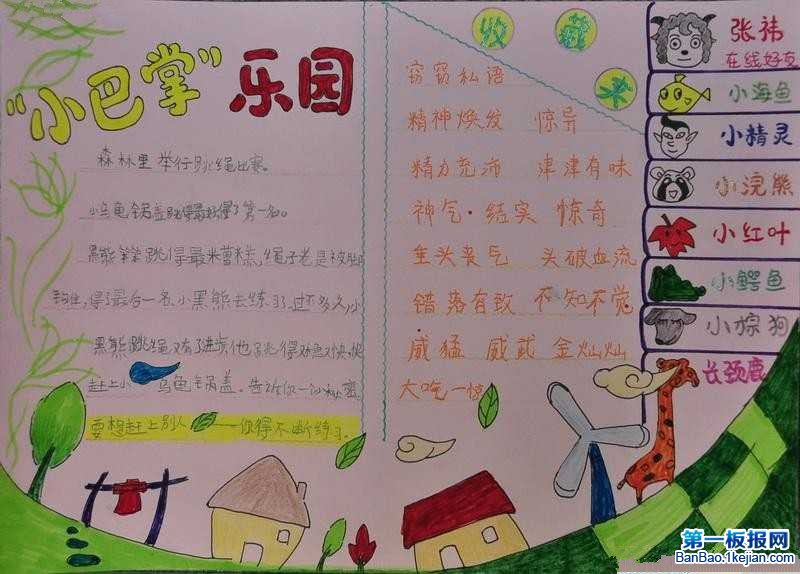 “小巴掌”乐园
森林里举行跳绳比赛。
小乌龟锅盖跳得最好得了第一名。
黑熊
跳得最米曹糕,绳子老是被
得了最后一名,小黑熊去练习了,过不多久,小
黑熊跳绳又有了进步,他跳得又快
赶上小
乌龟锅盖。告诉你一个秘密
要想赶上别人
——你得不断练习。
收藏夹
窃窃私语
精神焕发 惊异
精力充沛 津津有味
神气·结实 惊奇
垂头丧气 头破血流
错落有致 不知不觉
威猛 威武 金灿灿
大吃一惊
张祎
在线好友
小海鱼
小精灵
小浣熊
小红叶
小鳄鱼
小棕狗
长颈鹿
第一板报网
BanBao.1kejian.com